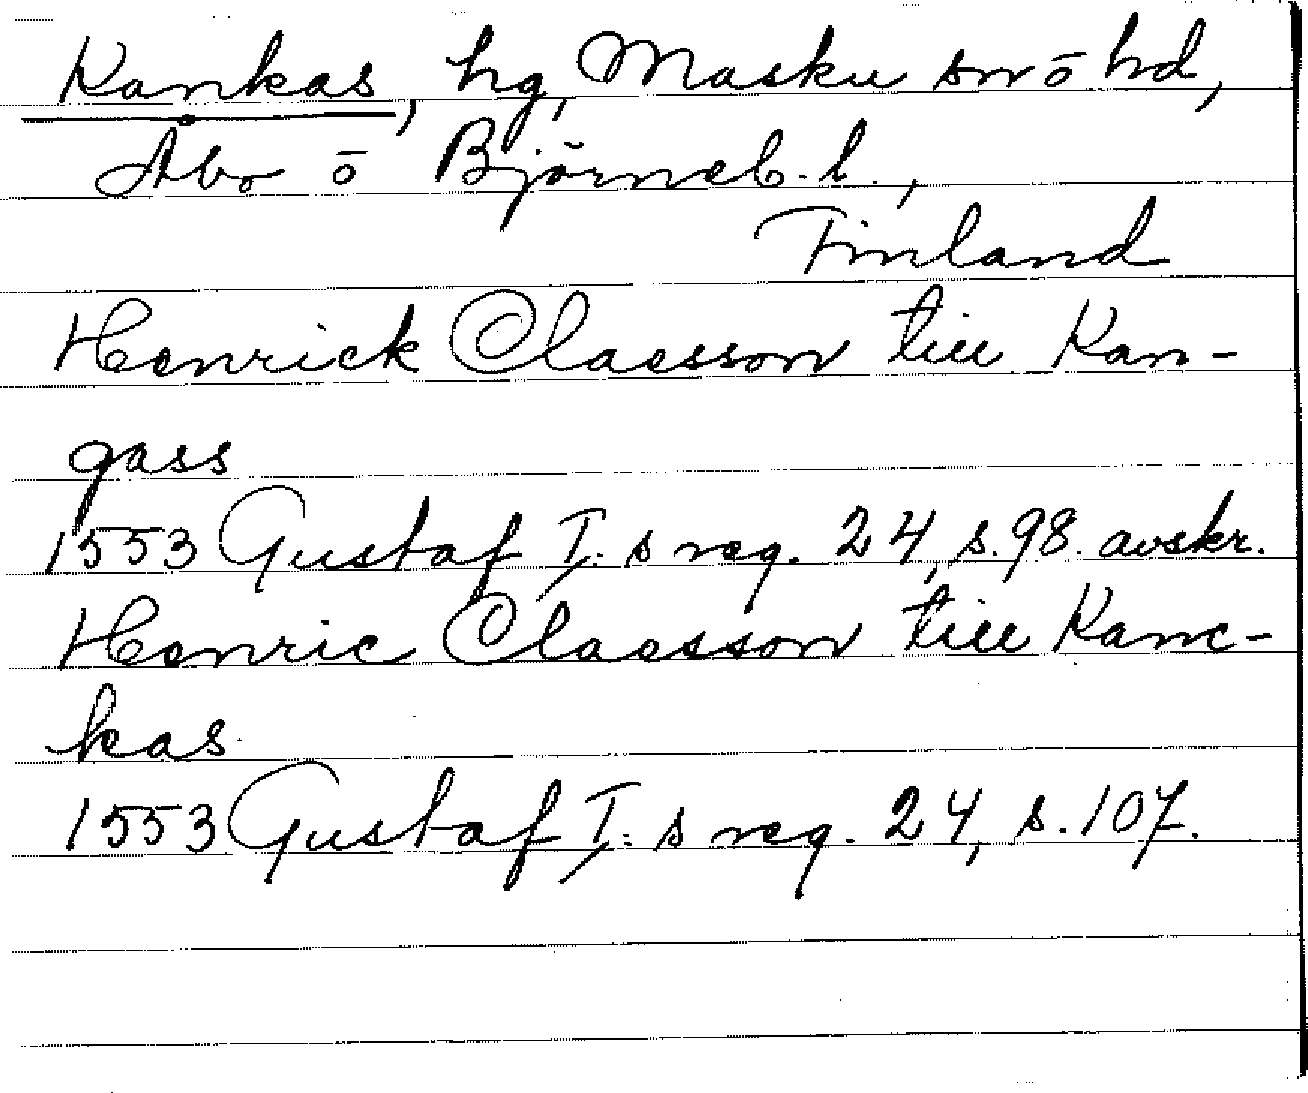 Kankas, hg, Masku sn ō hd,
Åbo ō Björneb. l.,
Finland
Henrick Claesson till Kan-
gass
1553 Gustaf I:s reg. 24, s. 98. avskr.
Henric Claesson till Kanc-
kas
1553 Gustaf I:s reg. 24, s. 107.